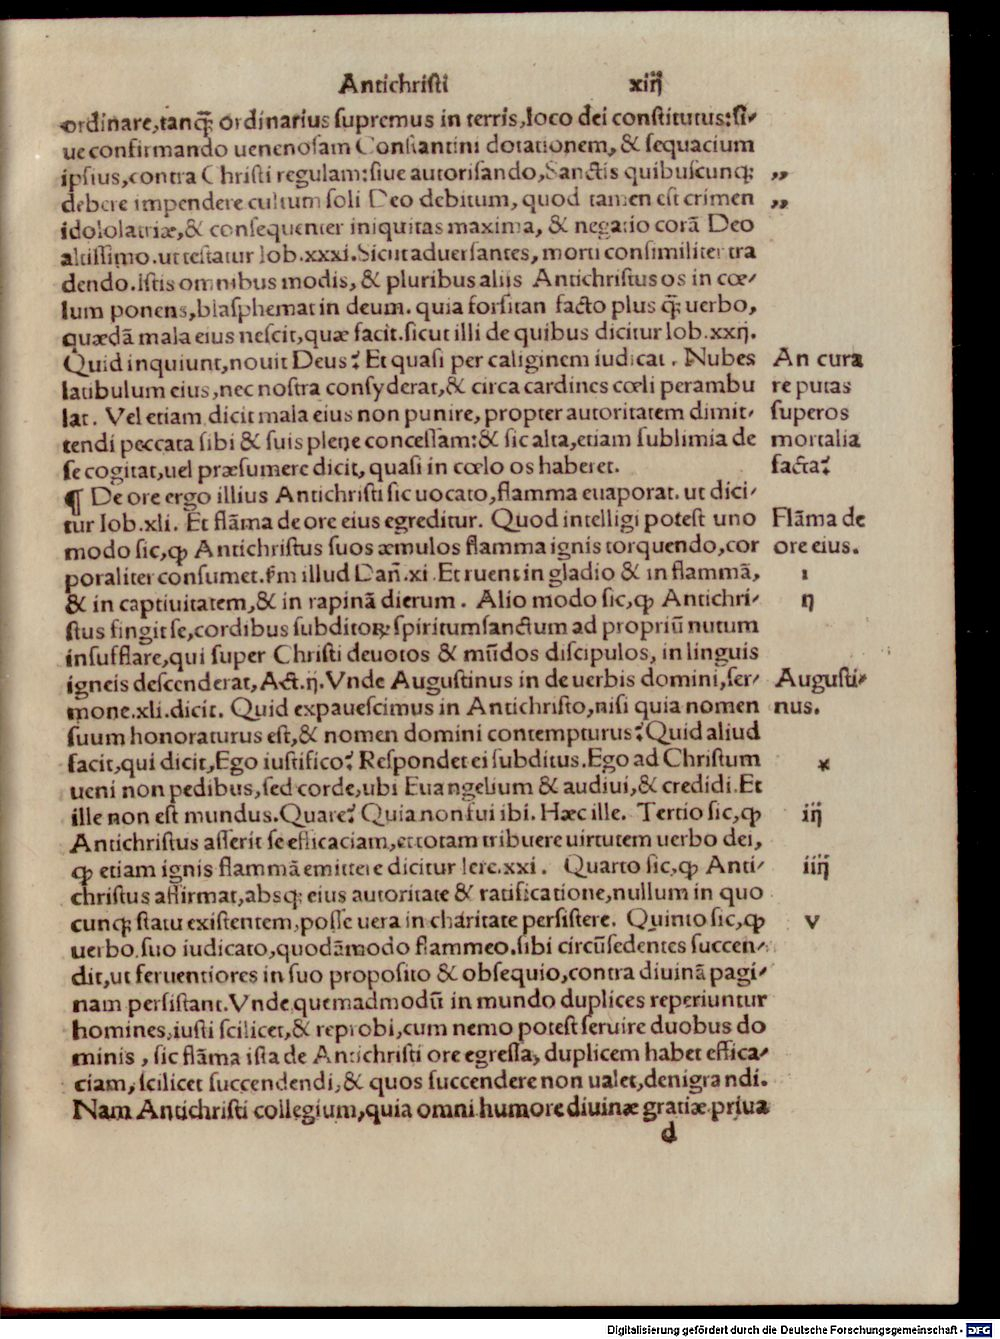 Antichristi xiij
ordinare,tanq̃ ordinarius supremus in terris,loco dei constitutus:si-
ue confirmando uenenosam Constantini dotationem, & sequacium
ipsius,contra Christi regulam:siue autorisando,Sanctis quibuscunq;
debere impendere cultum soli Deo debitum, quod tamen est crimen
idololatriæ,& consequenter iniquitas maxima, & negatio corã Deo
altissimo.ut testatur Iob.xxxi.Sicut aduersantes, morti consimiliter tra
dendo.Istis omnibus modis, & pluribus aliis Antichristus os in cœ-
lum ponens,blasphemat in deum. quia forsitan facto plus q̃ uerbo,
quædã mala eius nescit,quæ facit.sicut illi de quibus dicitur Iob.xxij.
Quid inquiunt,nouit Deus? Et quasi per caliginem iudicat. Nubes
latibulum eius,nec nostra consyderat,& circa cardines cœli perambu
lat. Vel etiam dicit mala eius non punire, propter autoritatem dimit-
tendi peccata sibi & suis plene concessam:& sic alta,etiam sublimia de
se cogitat,uel præsumere dicit, quasi in cœlo os haberet.
¶ De ore ergo illius Antichristi sic uocato,flamma euaporat. ut dici-
tur Iob.xli. Et flãma de ore eius egreditur. Quod intelligi potest uno
modo sic,ꝙ Antichristus suos æmulos flamma ignis torquendo,cor
poraliter consumet.ſm illud Dañ.xi.Et ruent in gladio & in flammã,
& in captiuitatem,& in rapinã dierum. Alio modo sic,ꝙ Antichri-
stus fingit se,cordibus subditoꝝ spiritumsanctum ad propriũ nutum
insufflare,qui super Christi deuotos & mũdos discipulos, in linguis
igneis descenderat, Act.ij. Vnde Augustinus in de uerbis domini,ser-
mone.xli.dicit. Quid expauescimus in Antichristo,nisi quia nomen
suum honoraturus est,& nomen domini contempturus?Quid aliud
facit,qui dicit,Ego iustifico? Respondet ei subditus.Ego ad Christum
ueni non pedibus,sed corde,ubi Euangelium & audiui,& credidi.Et
ille non est mundus.Quare? Quia non fui ibi. Hæc ille. Tertio sic,ꝙ
Antichristus asserit se efficaciam,et totam tribuere uirtutem uerbo dei,
ꝙ etiam ignis flammã emittere dicitur Iere.xxi. Quarto sic,ꝙ Anti-
christus affirmat,absq; eius autoritate & ratificatione,nullum in quo
cunq; statu existentem,posse uera in charitate persistere. Quinto sic,ꝙ
uerbo suo iudicato,quodãmodo flammeo.sibi circũsedentes succen-
dit,ut feruentiores in suo proposito & obsequio,contra diuinã pagi-
nam persistant.Vnde quemadmodũ in mundo duplices reperiuntur
homines,iusti scilicet,& reprobi,cum nemo potest seruire duobus do
minis, sic flãma ista de Antichristi ore egressa, duplicem habet effica-
ciam, scilicet succendendi,& quos succendere non ualet,denigrandi.
Nam Antichristi collegium,quia omni humore diuinæ gratiæ priua
d
„
„
An cura
re putas
superos
mortalia
facta?
Flãma de
ore eius.
i
ij
Augusti-
nus.
*
iij
iiij
v
Digitalisierung gefördert durch die Deutsche Forschungsgemeinschaft - DFG